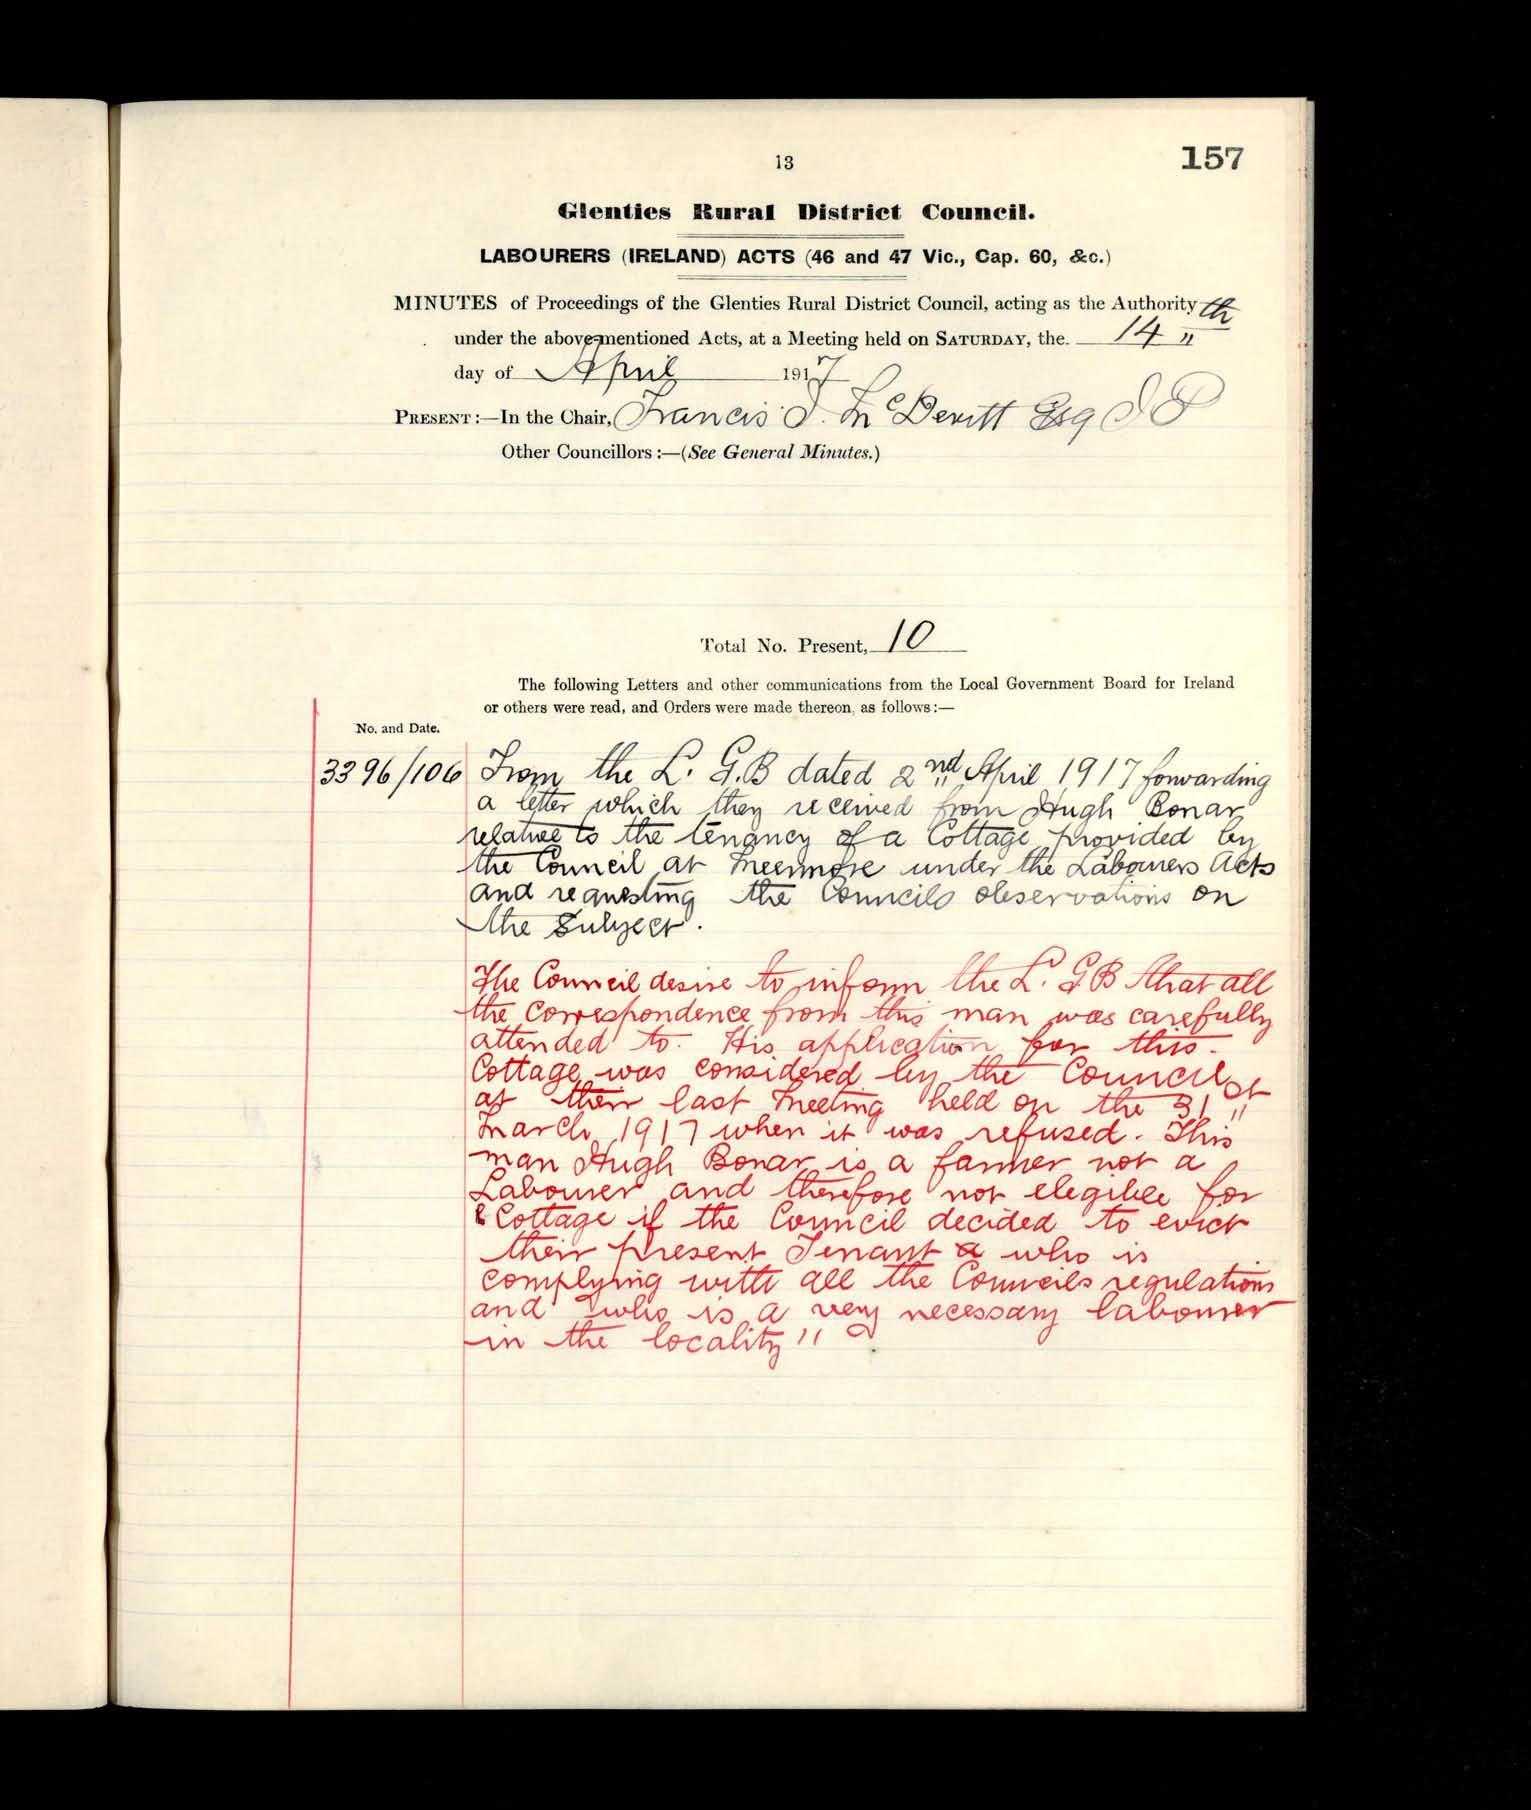 13
157
Glenties Rural District Council.
LABOURERS (IRELAND) ACTS (46 and 47 Vic., Cap. 60, &c.)
MINUTES of Proceedings of the Glenties Rural District Council, acting as the Authority
under the above-mentioned Acts, at a Meeting held on SATURDAY, the 14th
day of April 1917
PRESENT:—In the Chair, Francis J. McDevitt Esq J P
Other Councillors:—(See General Minutes.)
Total No. Present, 10
The following Letters and other communications from the Local Government Board for Ireland
or others were read, and Orders were made thereon, as follows:—
No. and Date.
3396/106 From the L. G. B dated 2nd April 1917 forwarding
a letter which they received from Hugh Bonar
relative to the tenancy of a Cottage provided by
the Council at Meenmore under the Labourers Acts
and requesting the Councils observations on
the Subject.
The Council desire to inform the L. G B that all
the correspondence from this man was carefully
attended to. His application for this
Cottage was considered by the Council
at their last Meeting held on the 31st
March 1917 when it was refused. This
man Hugh Bonar is a farmer not a
Labourer and therefore not elegible for
Cottage if the Council decided to evict
their present Tenant who is
complying with all the Councils regulations
and who is a very necessary labourer
in the locality "